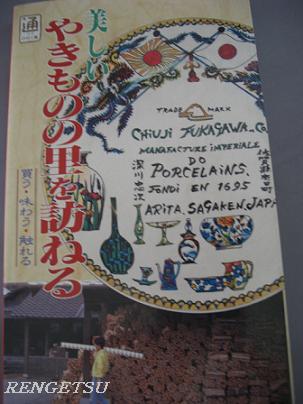 通
美しい
やきものの里を訪ねる
買う・味わう・触れる
TRADE MARK
CHIUJI FUKAGAWA & Co.
MANUFACTURE IMPERIALE
DO
PORCELAINS.
FONDI EN 1695
ARITA, SAGAKEN, JAPA
深川忠次
RENGETSU